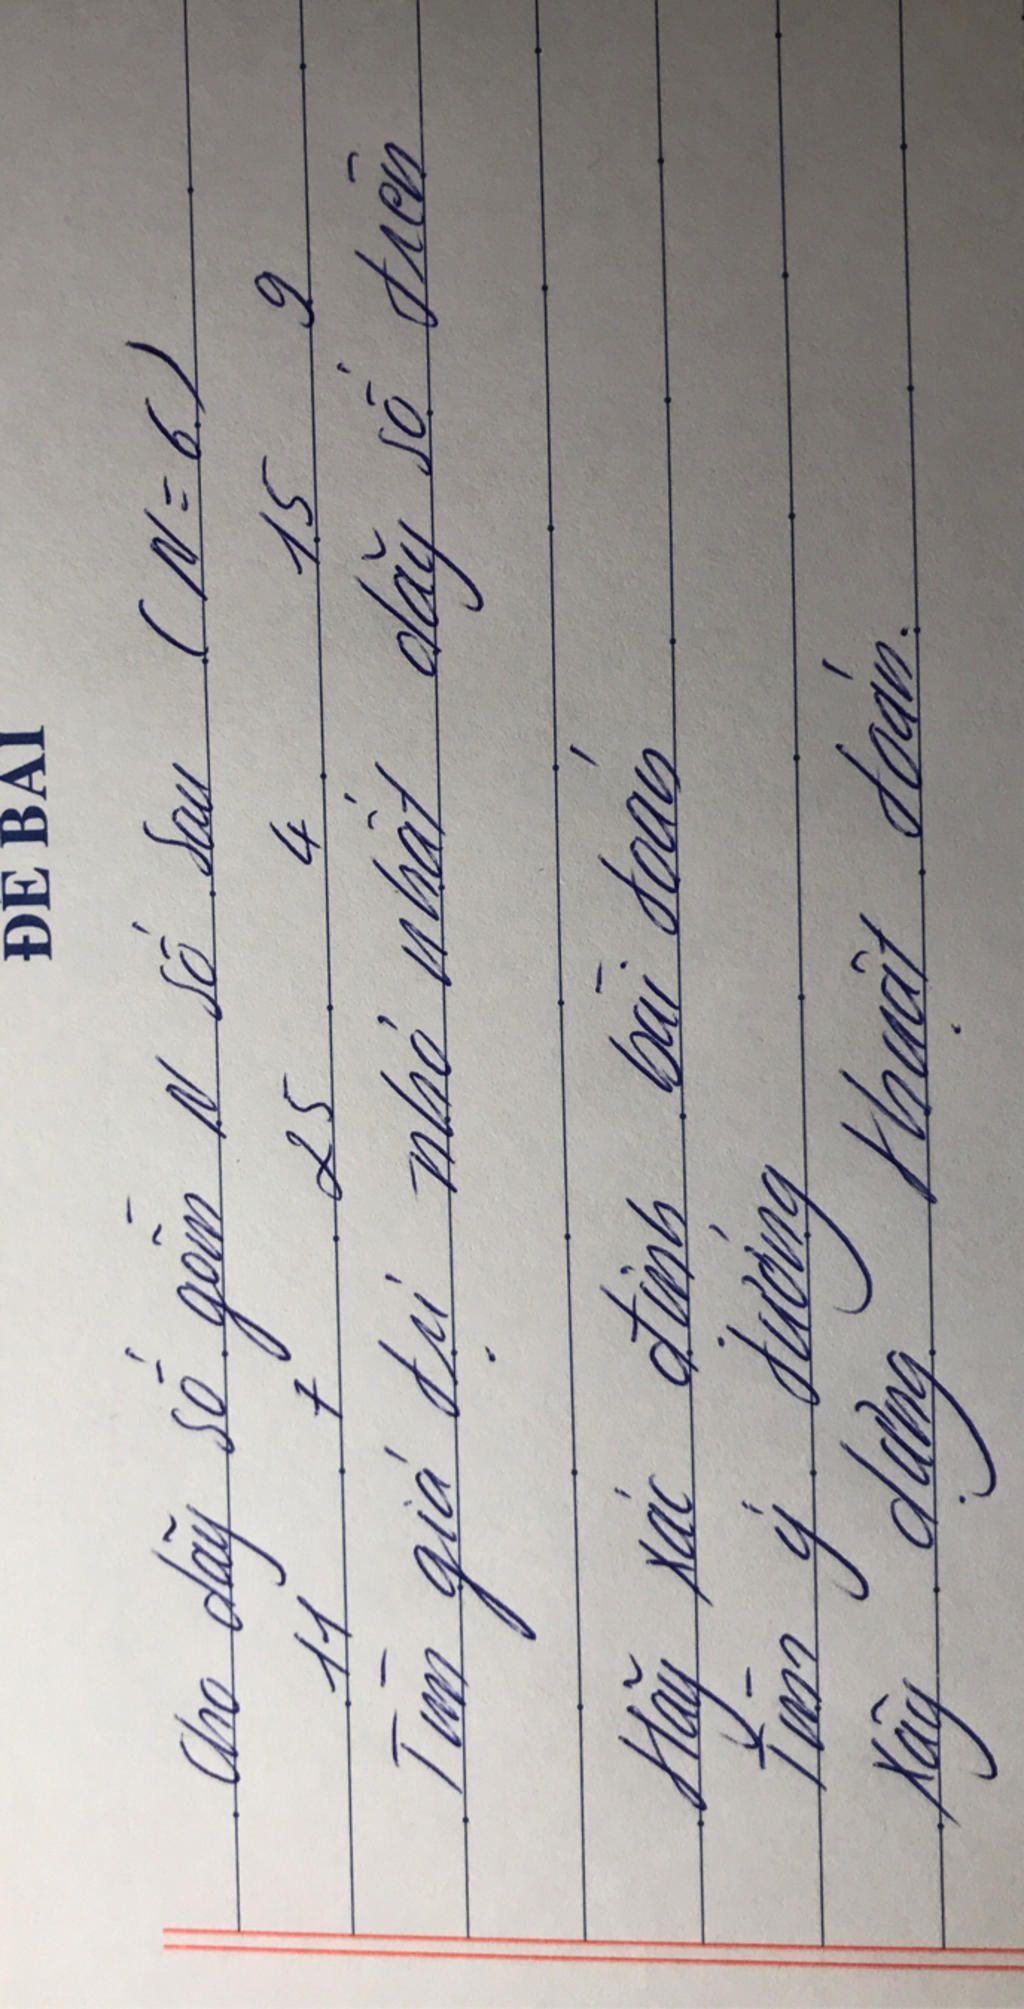 ĐỀ BÀI
Cho dãy số gồm N số sau (N=6)
11 7 25 4 15 9
Tìm giá trị nhỏ nhất dãy số trên
Hãy xác định bài toán
Tìm ý tưởng
Xây dựng thuật toán.